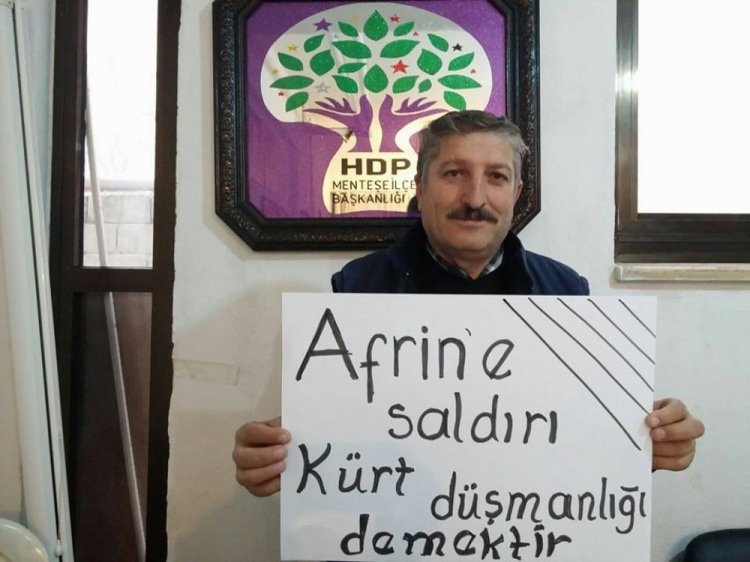 HDP
MENTEŞE İLÇE
BAŞKANLIĞI
Afrin'e
saldırı
Kürt düşmanlığı
demektir